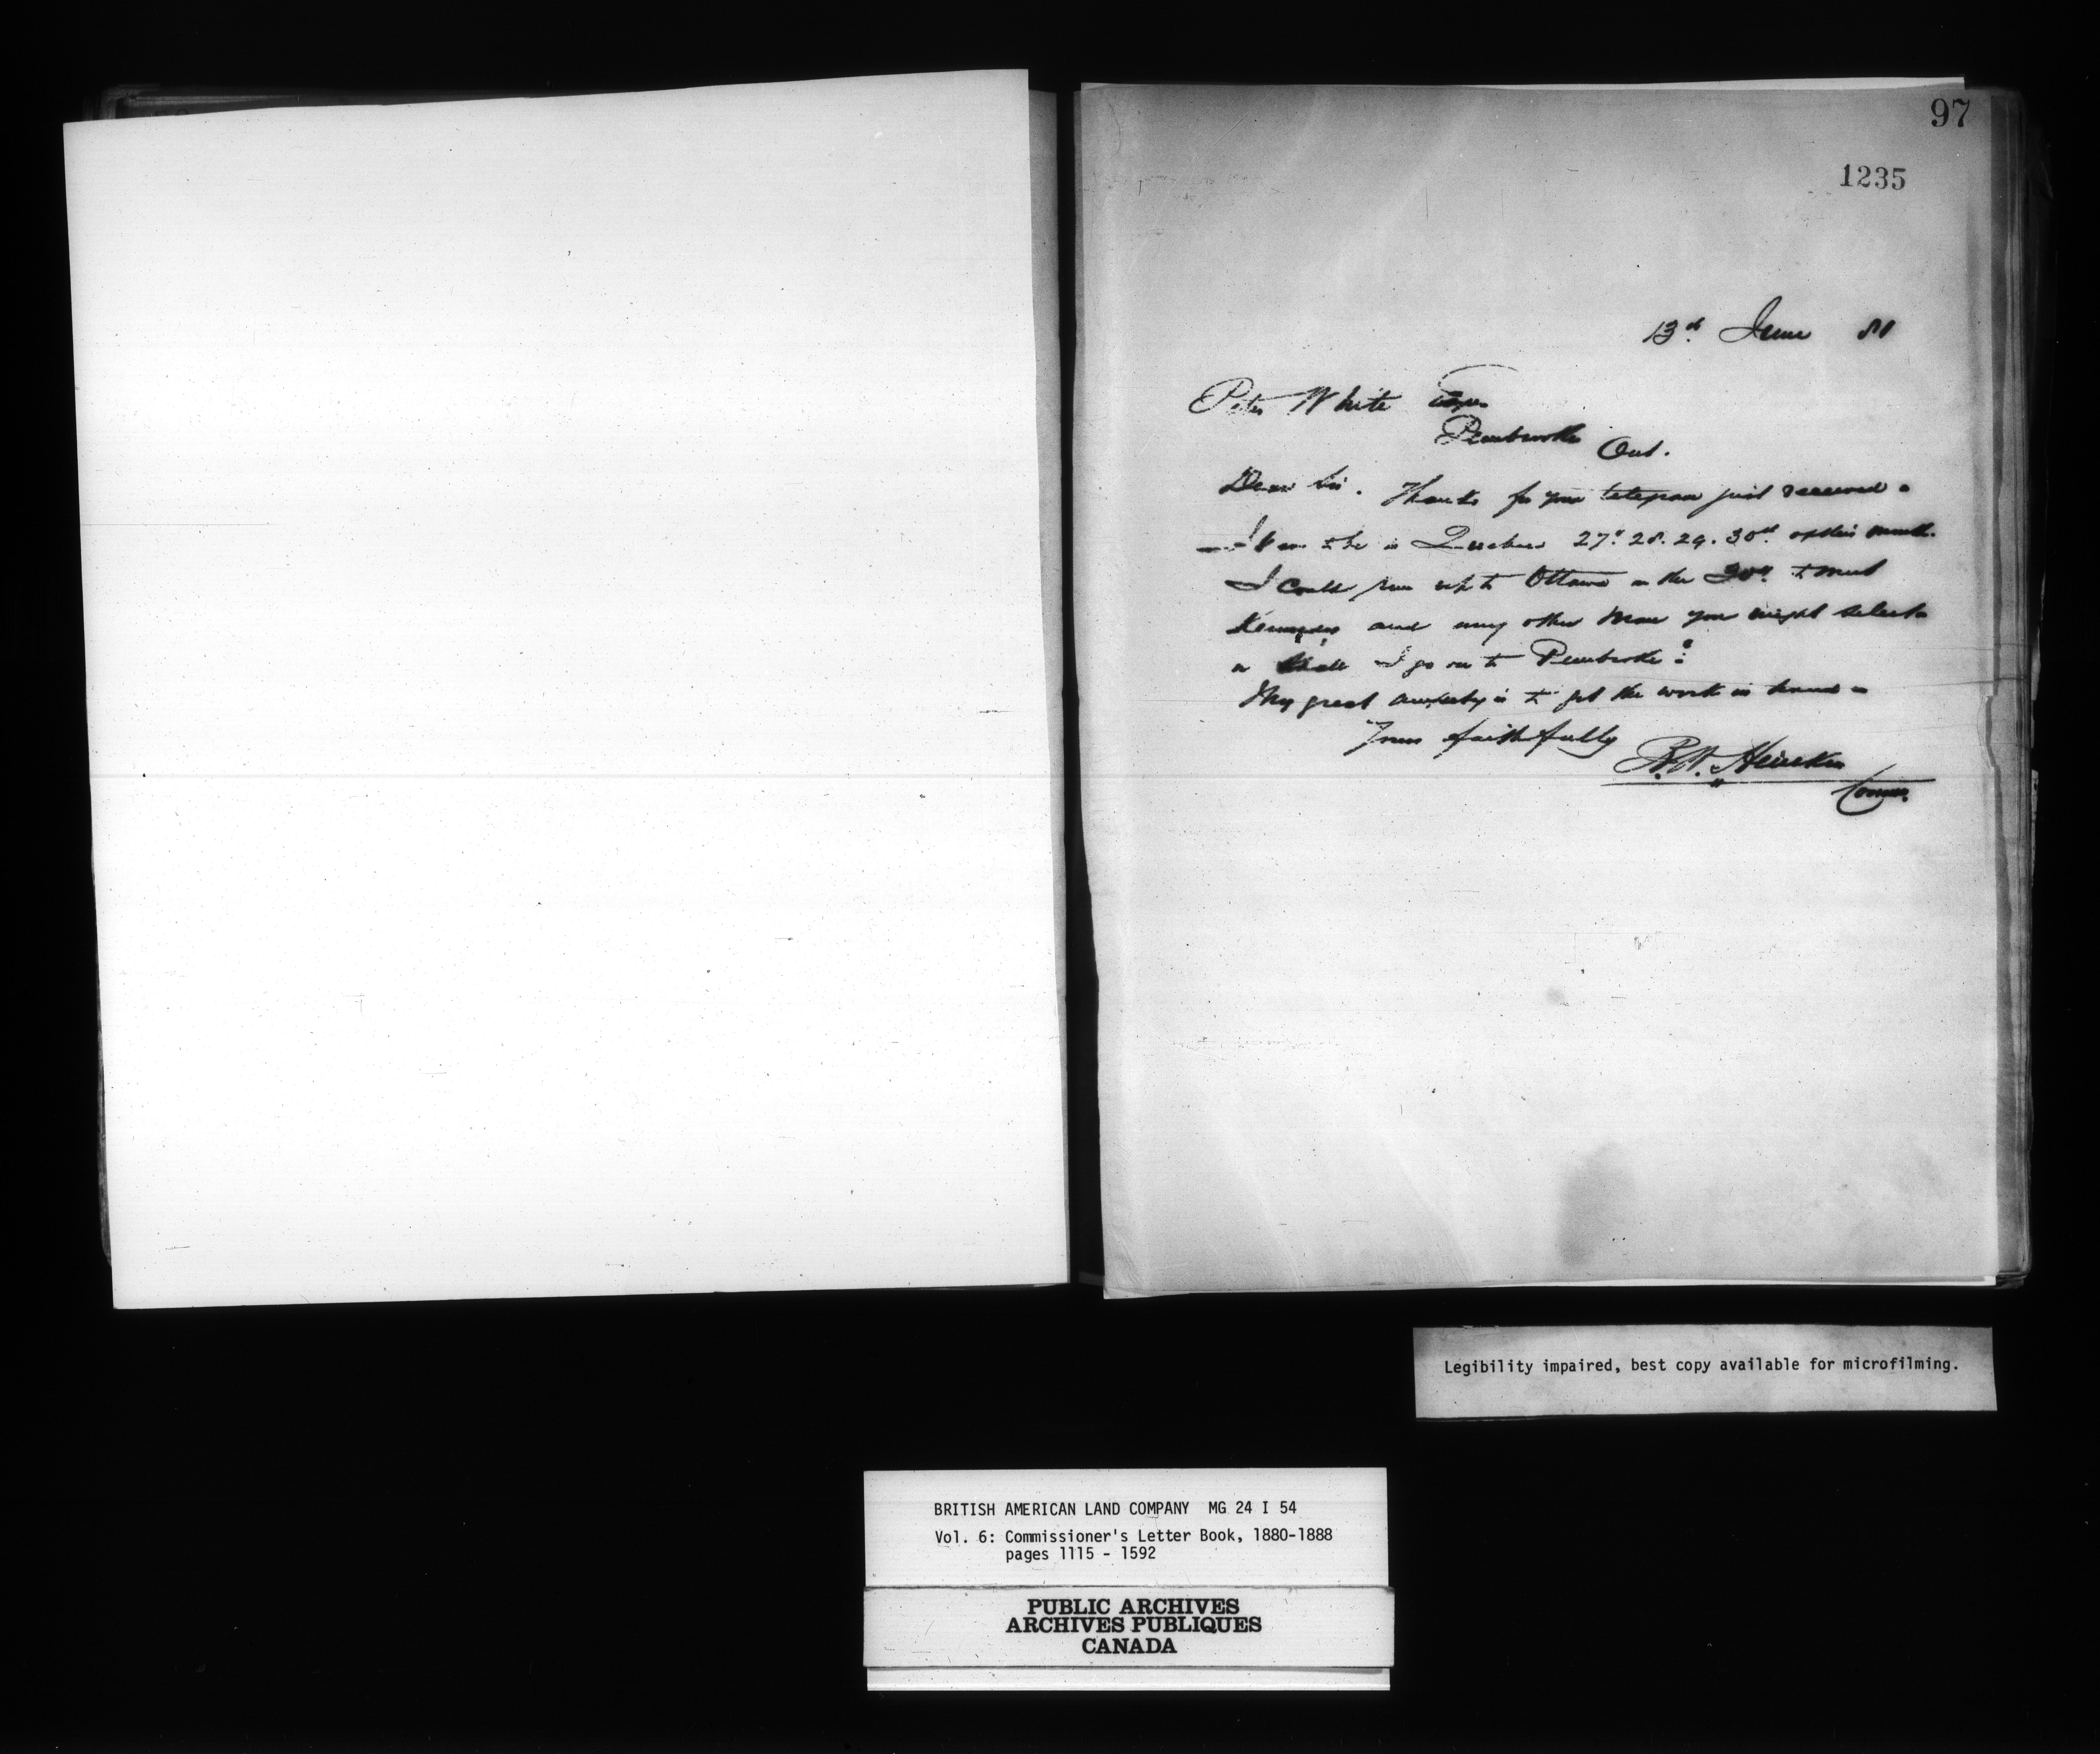 97
1235
13th June 81
Peter White Esqre
Pembroke Ont.
Dear Sir. Thanks for your telegram just received -
I am to be in Quebec 27th 28. 29. 30th of this month.
I could run up to Ottawa on the 30th to meet
Kennedy and any other man you might select -
or shall I go on to Pembroke?
My great anxiety is to get the work in hand -
Yours faithfully
R.W. Heneker
Commr.
Legibility impaired, best copy available for microfilming.
BRITISH AMERICAN LAND COMPANY MG 24 I 54
Vol. 6: Commissioner's Letter Book, 1880-1888
pages 1115 - 1592
PUBLIC ARCHIVES
ARCHIVES PUBLIQUES
CANADA